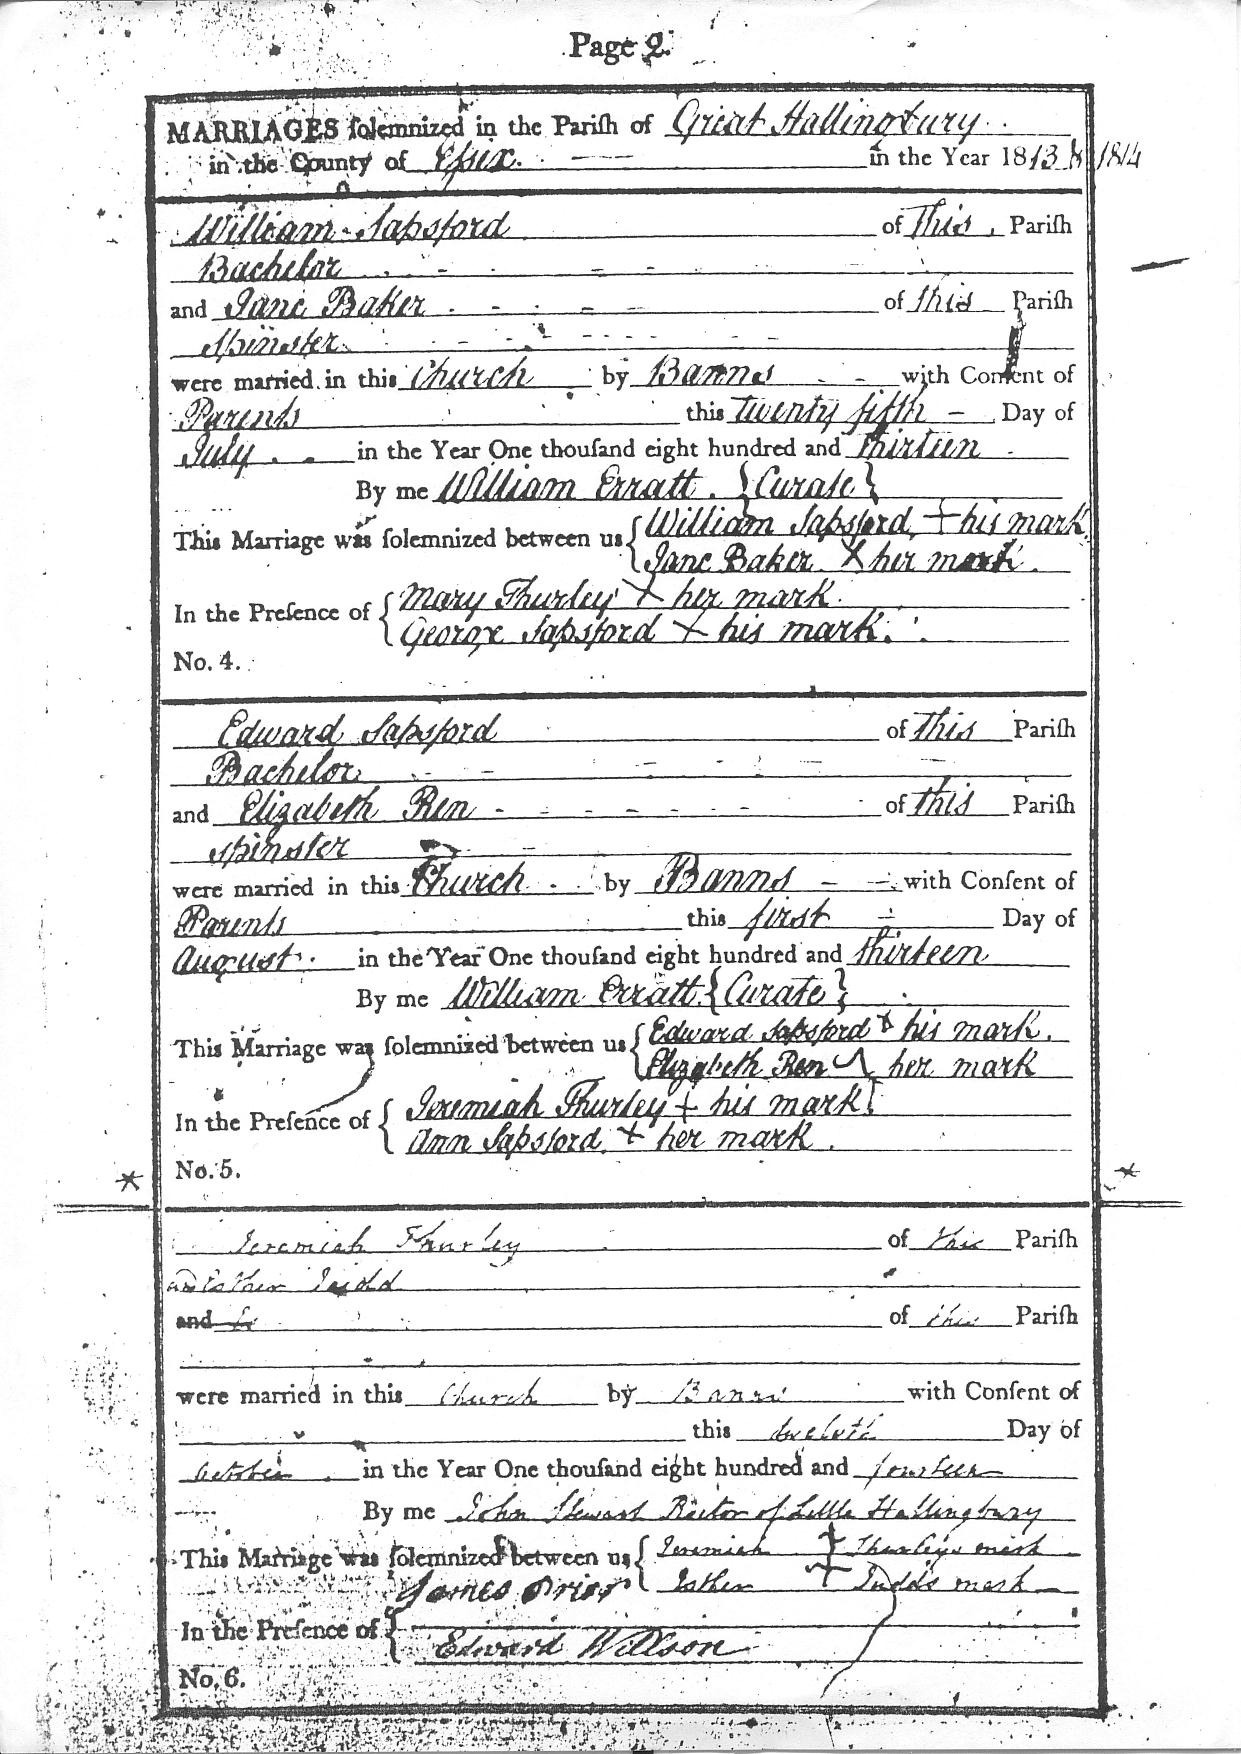 Page 2.
MARRIAGES ſolemnized in the Pariſh of Great Hallingbury
in the County of Eſsex. in the Year 1813 & 1814
William Sapsford of This Pariſh
Bachelor
and Jane Baker of this Pariſh
Spinster
were married in this Church by Banns with Conſent of
Parents this twenty fifth Day of
July in the Year One thouſand eight hundred and thirteen
By me William Erratt. {Curate}
This Marriage was ſolemnized between us { William Sapsford + his mark
Jane Baker X her mark.
In the Preſence of { Mary Thurley X her mark.
George Sapsford X his mark.
No. 4.
Edward Sapsford of This Pariſh
Bachelor
and Elizabeth Ren of this Pariſh
Spinster
were married in this Church by Banns with Conſent of
Parents this first Day of
August in the Year One thouſand eight hundred and thirteen
By me William Erratt {Curate}
This Marriage was ſolemnized between us { Edward Sapsford X his mark.
Elizabeth Ren her mark
In the Preſence of { Jeremiah Thurley + his mark
Ann Sapsford + her mark.
No. 5.
Jeremiah Thurley of this Pariſh
and Esther Judd
and of this Pariſh
were married in this Church by Banns with Conſent of
this twelvth Day of
October in the Year One thouſand eight hundred and fourteen
By me John Stewart Rector of Little Hallingbury
This Marriage was ſolemnized between us { Jeremiah + Thurleys mark
James Prior Esther + Judds mark
In the Preſence of {
Edward Willson
No. 6.